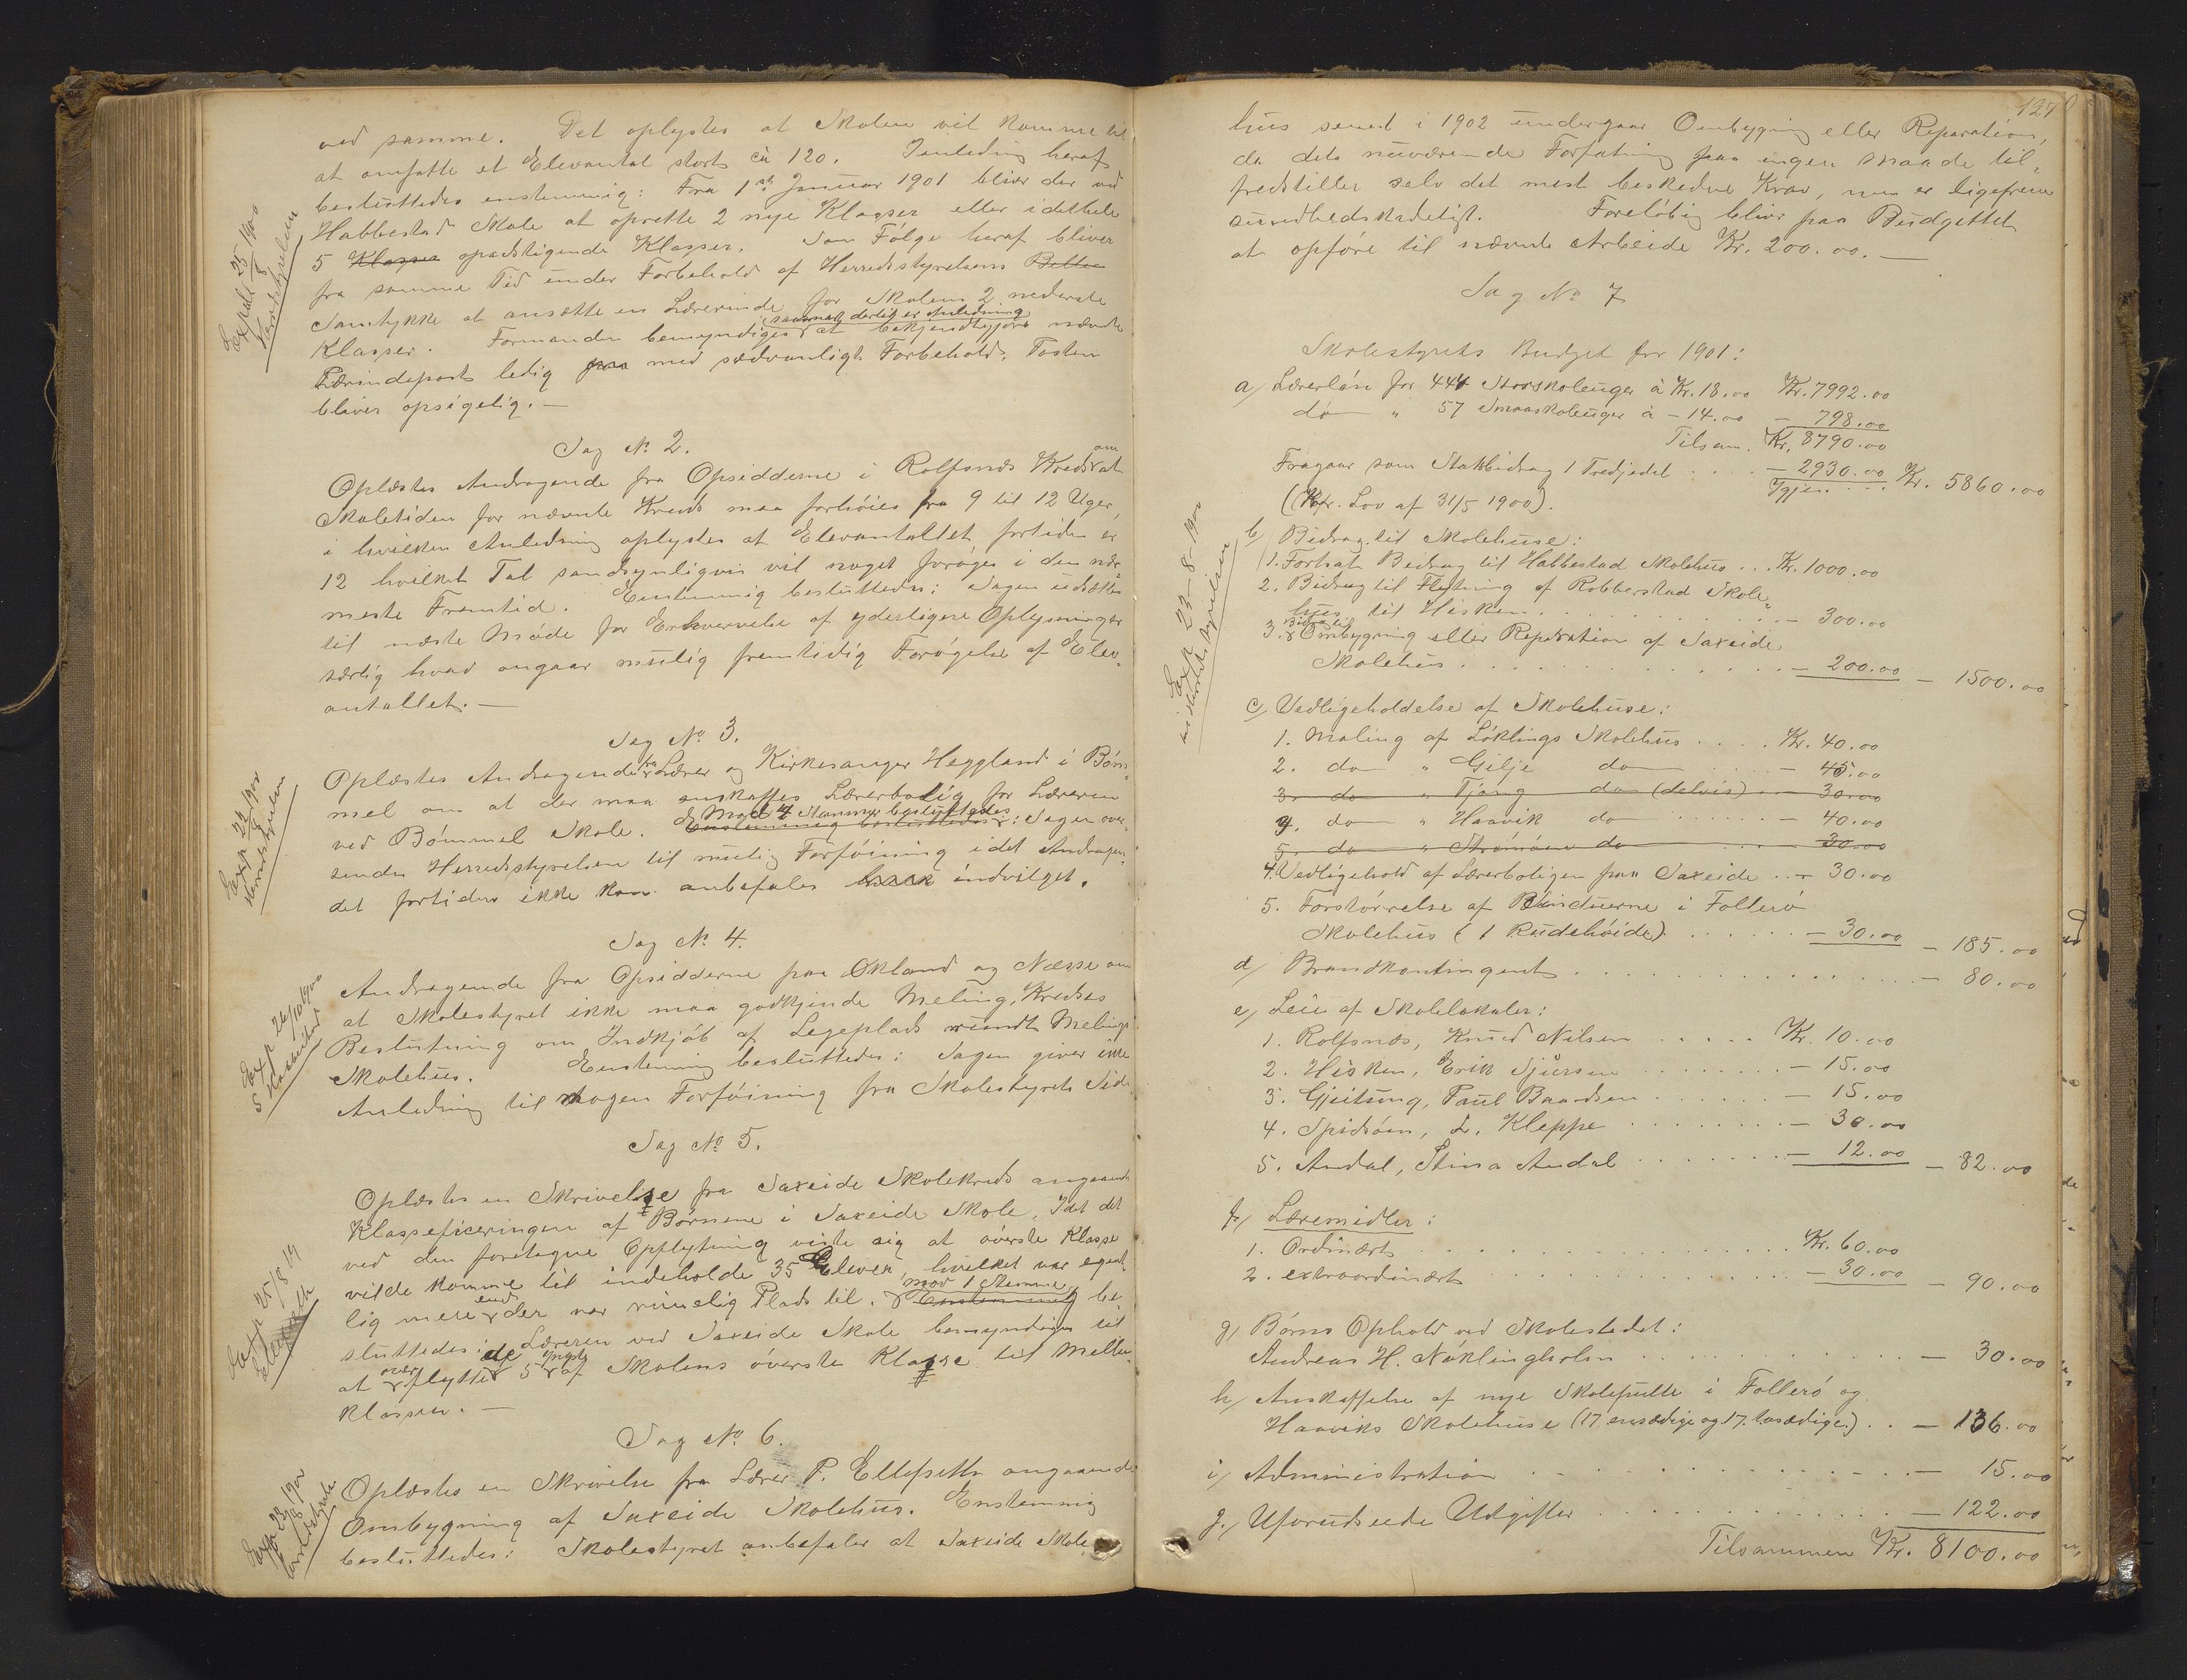 ved samme. Det oplystes at Skolen vil komme til
at omfatte et Elevantal stort ca 120. I anledning heraf
besluttedes enstemmig: Fra 1ste Januar 1901 bliver der ved
Habbestad Skole at oprette 2 nye Klasser eller i dethele
5 Klasser opadstigende Klasser. Som Følge heraf bliver
fra samme Tid under Forbehold af Herredsstyrelsens
Samtykke at ansætte en Lærerinde for Skolens 2 nederste
Klasser. Formanden bemyndiges (saasnart dertil er Anledning) at bekjendtgjøre nævnte
Lærerindepost ledig paa med sædvanligt Forbehold. Posten
bliver opsigelig. —
Expdt 25/8 1900
Herredsstyrelsen
Sag No. 2.
Oplæstes Andragende fra Opsidderne i Rolfsnæs Kreds om at
Skoletiden for nævnte Kreds maa forhøies fra 9 til 12 Uger,
i hvilken Anledning oplystes at Elevantallet fortiden er
12 hvilket Tal sandsynligvis vil noget forøges i den nær-
meste Fremtid. Enstemmig besluttedes: Sagen udsættes
til næste Møde for Erhvervelse af yderligere Oplysninger
særlig hvad angaar mulig fremtidig Forøgelse af Elev-
antallet. —
Sag No. 3.
Oplæstes Andragende fra Lærer og Kirkesanger Heggland i Bøm-
mel om at der maa anskaffes Lærerbolig for Læreren
ved Bømmel Skole. Enstemmig besluttedes Mod 4 Stemmer besluttedes: Sagen over-
sendes Herredsstyrelsen til mulig Forføining idet Andragen-
det fortiden ikke kan anbefales indvilget.
Exp 22/8 1900
Herredsstyrelsen
Sag No. 4.
Andragende fra Opsidderne paa Økland og Næsse om
at Skolestyret ikke maa godkjende Melings Kredses
Beslutning om Indkjøb af Legeplads rundt Melings
Skolehus. Enstemmig besluttedes: Sagen giver ikke
Anledning til nogen Forføining fra Skolestyrets Side
Exp 26/10 1900
Sag No. 5.
Oplæstes en Skrivelse fra Saxeide Skolekreds angaaende
Klasseficeringen af Børnene i Saxeide Skole. Idet det
ved den foretagne Opflytning viste sig at øverste Klasse
vilde komme til indeholde 35 Elever, hvilket var egent-
lig mere end der var rimelig Plads til. Enstemmig mod 1 Stemme be-
sluttedes: Læreren ved Saxeide Skole bemyndiges til
at nedflytte de 5 yngste af Skolens øverste Klasse til Mellem-
klassen. —
Exp 25/8 19
Ellefseth
Sag No. 6.
Oplæstes en Skrivelse fra Lærer P. Ellefseth angaaende
Ombygning af Saxeide Skolehus. Enstemmig
besluttedes: Skolestyret anbefaler at Saxeide Skole-
Exp 22/8 1900
Herredsstyrelse
127
hus senest i 1902 undergaar Ombygning eller Reparation,
da dets nuværende Forfatning paa ingen Maade til-
fredstiller selv det mest beskedne Krav, men er ligefrem
sundhedsskadeligt. Foreløbig bliver paa Budgettet
at opføre til nævnte Arbeide Kr. 200.00. —
Sag No 7
Skolestyrets Budget for 1901:
a/ Lærerløn for 444 Storskoleuger à Kr. 18.00 Kr. 7992.00
do " 57 Smaaskoleuger à - 14.00 — 798.00
Tilsam. Kr. 8790.00
Fragaar som Statsbidrag 1 Tredjedel . . . — 2930.00
Igjen . . . Kr. 5860.00
(Kfr. Lov af 31/5 1900).
Exp 23-8-1900
Herredsstyrelsen
b/ Bidrag til Skolehuse:
1. Fortsat Bidrag til Habbestad Skolehus . . . Kr. 1000.00
2. Bidrag til Flytning af Robberstad Skole-
hus til Hisken . . . — 300.00
3. Bidrag til Ombygning eller Reparation af Saxeide
Skolehus . . . — 200.00 — 1500.00
c/ Vedligeholdelse af Skolehuse:
1. Maling af Løklings Skolehus . . . . Kr. 40.00
2. do " Gilje do — 45.00
3. do " Tjong do (delvis) . . — 30.00
3. do " Haavik do . . . — 40.00
5. do " Strømøen do . . . — 30.00
4. Vedligehold af Lærerboligen paa Saxeide . . — 30.00
5. Forstørrelse af Vinduerne i Follerø
Skolehus (1 Rudehøide) . . . — 30.00 — 185.00
d/ Brandkontingent . . . — 80.00
e/ Leie af Skolelokaler:
1. Rolfsnæs, Knud Nilsen . . . Kr. 10.00
2. Hisken, Erik Sjursen . . . — 15.00
3. Gjeitung, Paul Baardsen . . . — 15.00
4. Spidsøen, L. Kleppe . . . — 30.00
5. Andal, Stina Andal . . . — 12.00 — 82.00
f/ Læremidler:
1. Ordinært . . . Kr. 60.00
2. extraordinært . . . — 30.00 — 90.00
g/ Børns Ophold ved Skolestedet:
Andreas H. Nøklingholm . . . — 30.00
h/ Anskaffelse af nye Skolepulte i Follerø og
Haaviks Skolehuse (17 ensædige og 17. tosædige.) . . — 136.00
i/ Administration . . . — 15.00
j./ Uforudseede Udgifter . . . — 122.00
Tilsammen Kr. 8100.00